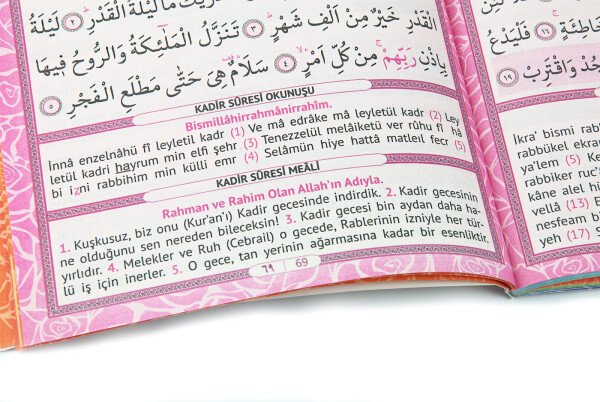 الْقَدْرِ خَيْرٌ مِنْ اَلْفِ شَهْرٍ ﴿٣﴾ تَنَزَّلُ الْمَلٰٓئِكَةُ وَالرُّوحُ فِيهَا
بِاِذْنِ رَبِّهِمْ مِنْ كُلِّ اَمْرٍ ﴿٤﴾ سَلَامٌ هِىَ حَتّٰى مَطْلَعِ الْفَجْرِ ﴿٥﴾
KADİR SÛRESİ OKUNUŞU
Bismillâhirrahmânirrahîm.
İnnâ enzelnâhü fî leyletil kadr (1) Ve mâ edrâke mâ leyletül kadr (2) Ley
letül kadri hayrum min elfi şehr (3) Tenezzelül melâiketü ver rûhu fî hâ
bi izni rabbihim min külli emr (4) Selâmün hiye hattâ matleıl fecr (5)
KADİR SÛRESİ MEÂLİ
Rahman ve Rahim Olan Allah'ın Adıyla.
1. Kuşkusuz, biz onu (Kur'an'ı) Kadir gecesinde indirdik. 2. Kadir gecesinin
ne olduğunu sen nereden bileceksin! 3. Kadir gecesi bin aydan daha ha-
yırlıdır. 4. Melekler ve Ruh (Cebrail) o gecede, Rablerinin izniyle her tür-
lü iş için inerler. 5. O gece, tan yerinin ağarmasına kadar bir esenliktir.
٦٩ | 69
فَلْيَدْعُ
وَاقْتَرِبْ ﴿١٩﴾
Ikra' bismi
rabbükel ekra
ya'lem (5) Ke
rabbike ruc'
hâne alel
yellâ (13) E
nesfeam bi
yeh (17) S